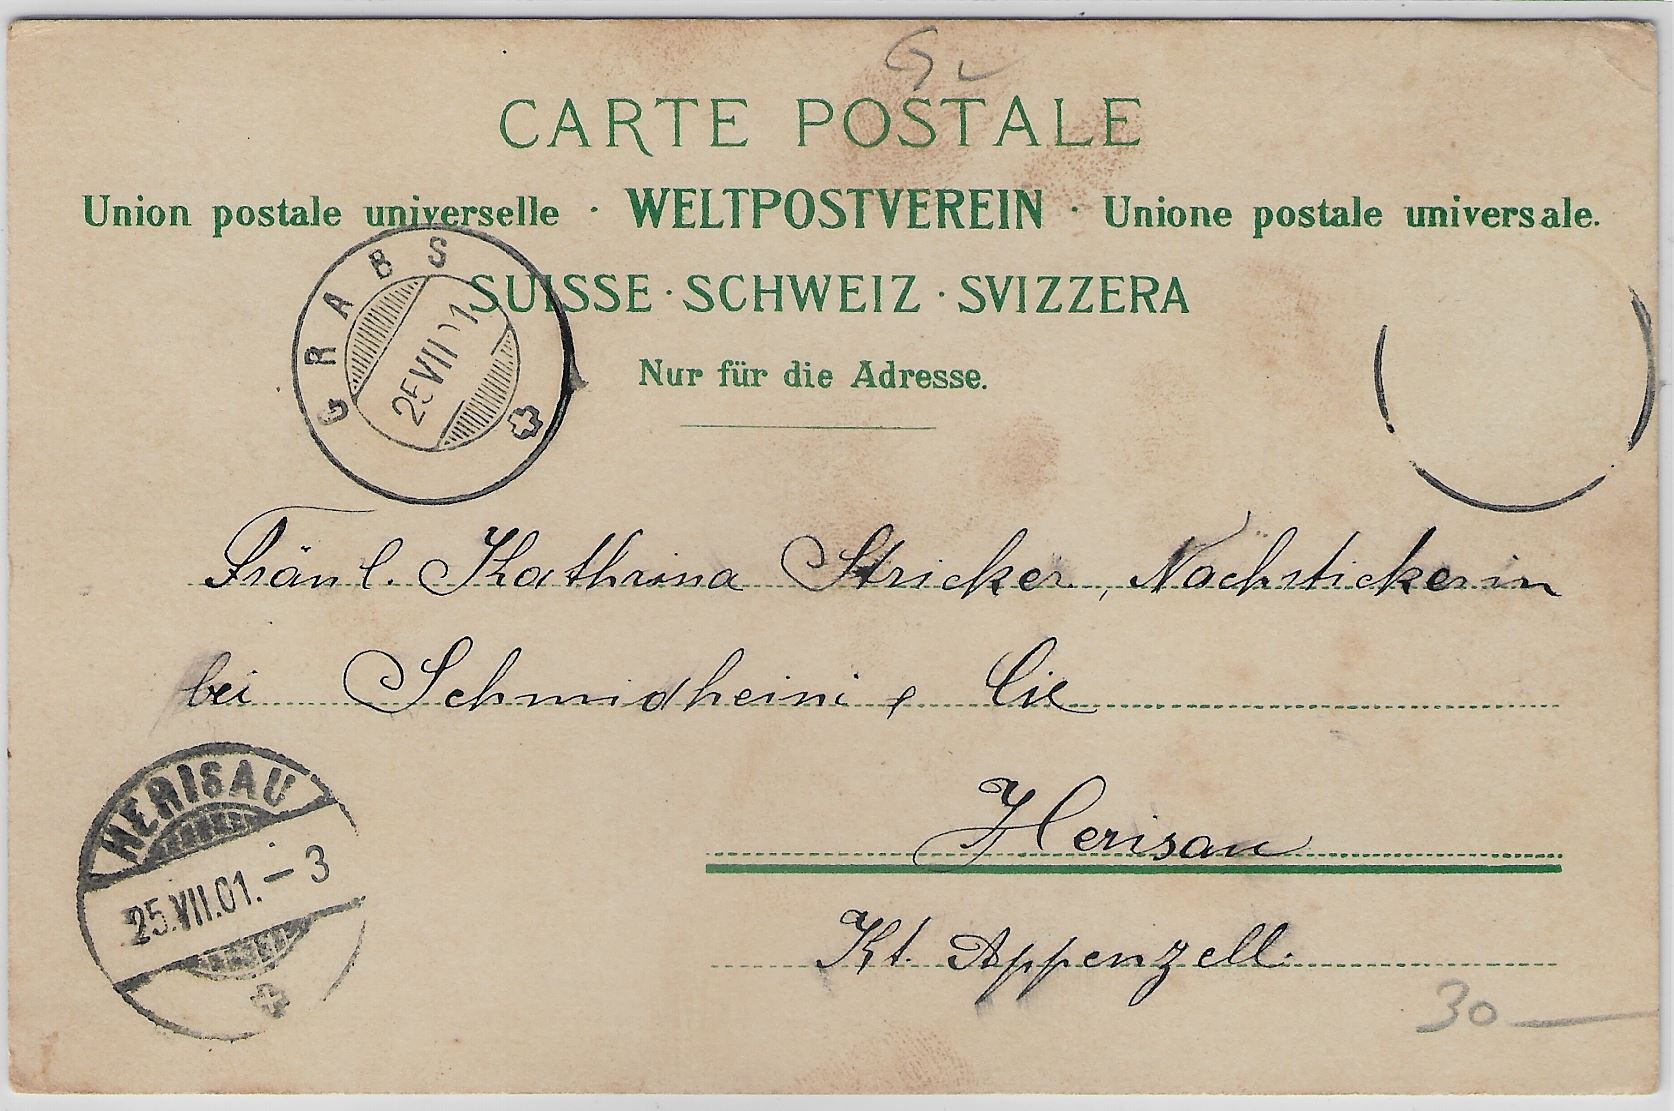 CARTE POSTALE
Union postale universelle · WELTPOSTVEREIN · Unione postale universale.
SUISSE · SCHWEIZ · SVIZZERA
Nur für die Adresse.
GRABS
25 VII 01
Fräul. Kathrina Stricker, Nachstickerin
bei Schmidheini & Cie
Herisau
Kt. Appenzell.
HERISAU
25.VII.01.–3
30